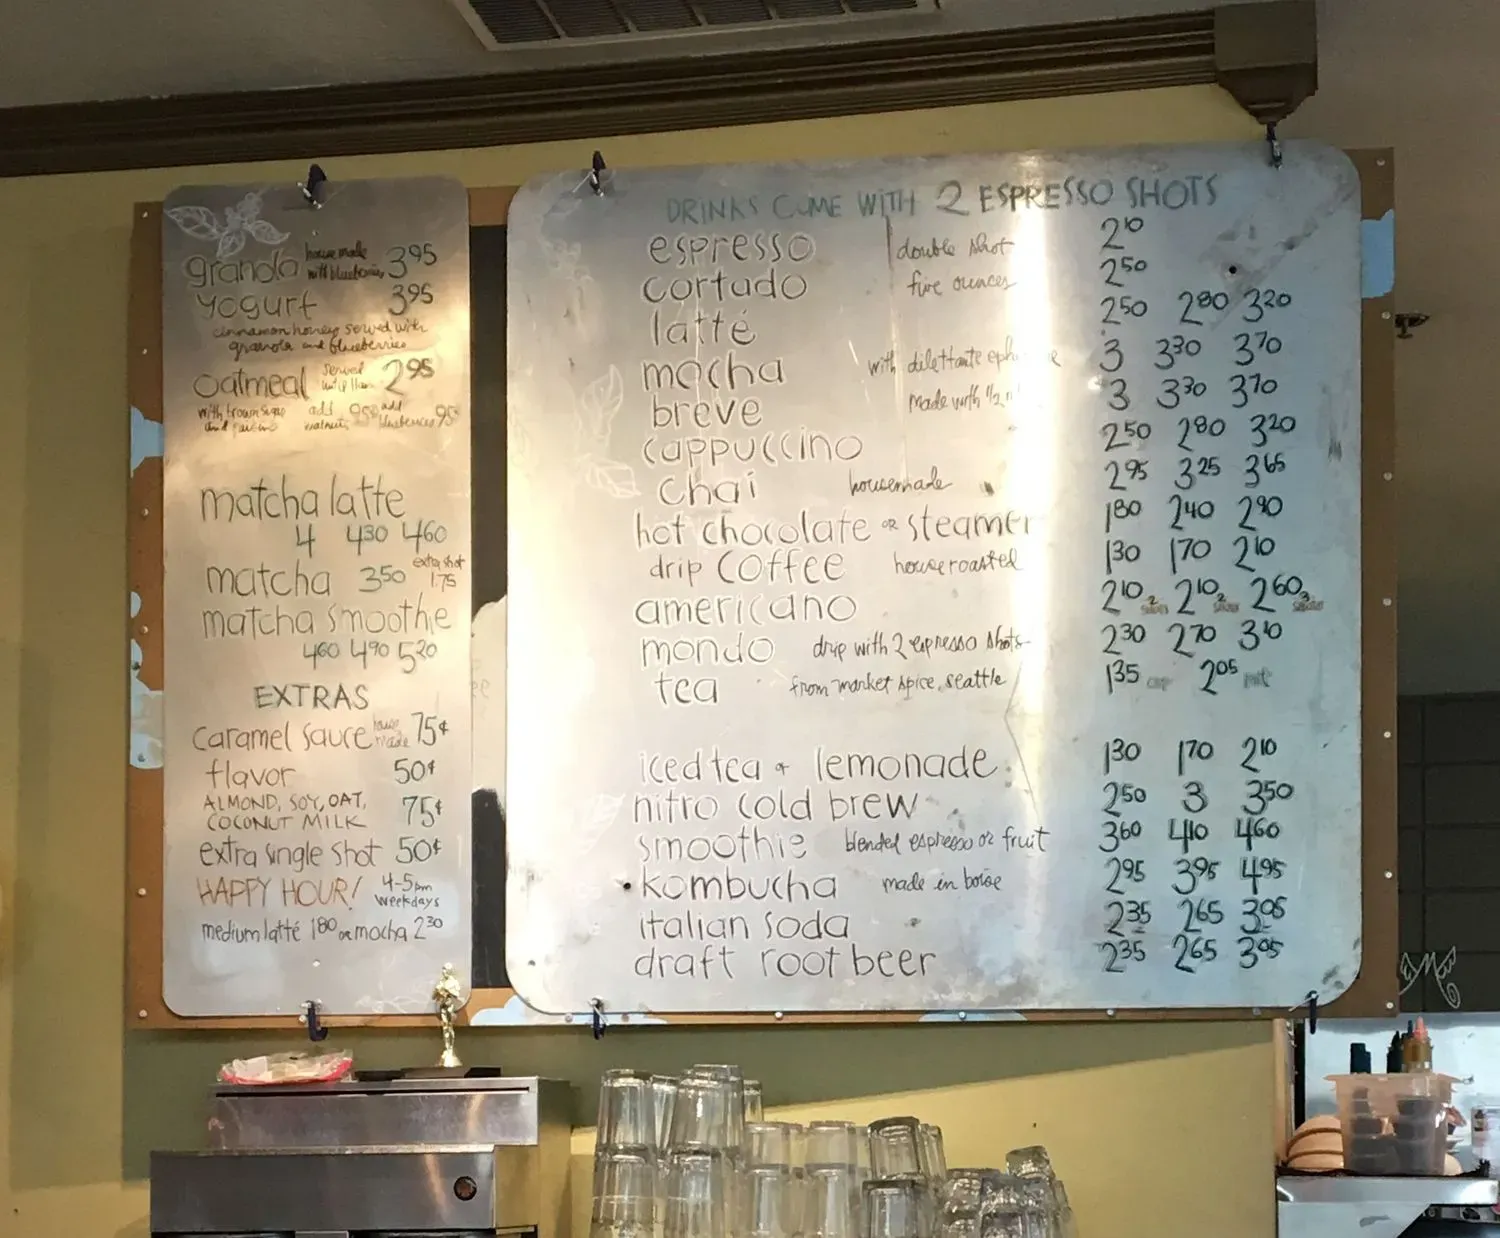 granola house made with blueberries 3.95
yogurt 3.95
cinnamon honey served with
granola and blueberries
oatmeal served until 11am 2.95
with brown sugar and raisins add walnuts 95¢ add blueberries 95¢
matcha latte
4 4.30 4.60
matcha 3.50 extra shot 1.75
matcha smoothie
4.60 4.90 5.20
EXTRAS
caramel sauce house made 75¢
flavor 50¢
ALMOND, SOY, OAT,
COCONUT MILK 75¢
extra single shot 50¢
HAPPY HOUR! 4-5pm weekdays
medium latté 1.80 or mocha 2.30
DRINKS COME WITH 2 ESPRESSO SHOTS
espresso double shot 2.10
cortado five ounces 2.50
latté 2.50 2.80 3.20
mocha with dilettante 3 3.30 3.70
breve made with 1/2 3 3.30 3.70
cappuccino 2.50 2.80 3.20
chai housemade 2.95 3.25 3.65
hot chocolate or steamer 1.80 2.40 2.90
drip coffee house roasted 1.30 1.70 2.10
americano 2.10 2 shots 2.10 2 shots 2.60 3 shots
mondo drip with 2 espresso shots 2.30 2.70 3.10
tea from market spice, seattle 1.35 cup 2.05 pot
iced tea or lemonade 1.30 1.70 2.10
nitro cold brew 2.50 3 3.50
smoothie blended espresso or fruit 3.60 4.10 4.60
kombucha made in boise 2.95 3.95 4.95
italian soda 2.35 2.65 3.05
draft root beer 2.35 2.65 3.05